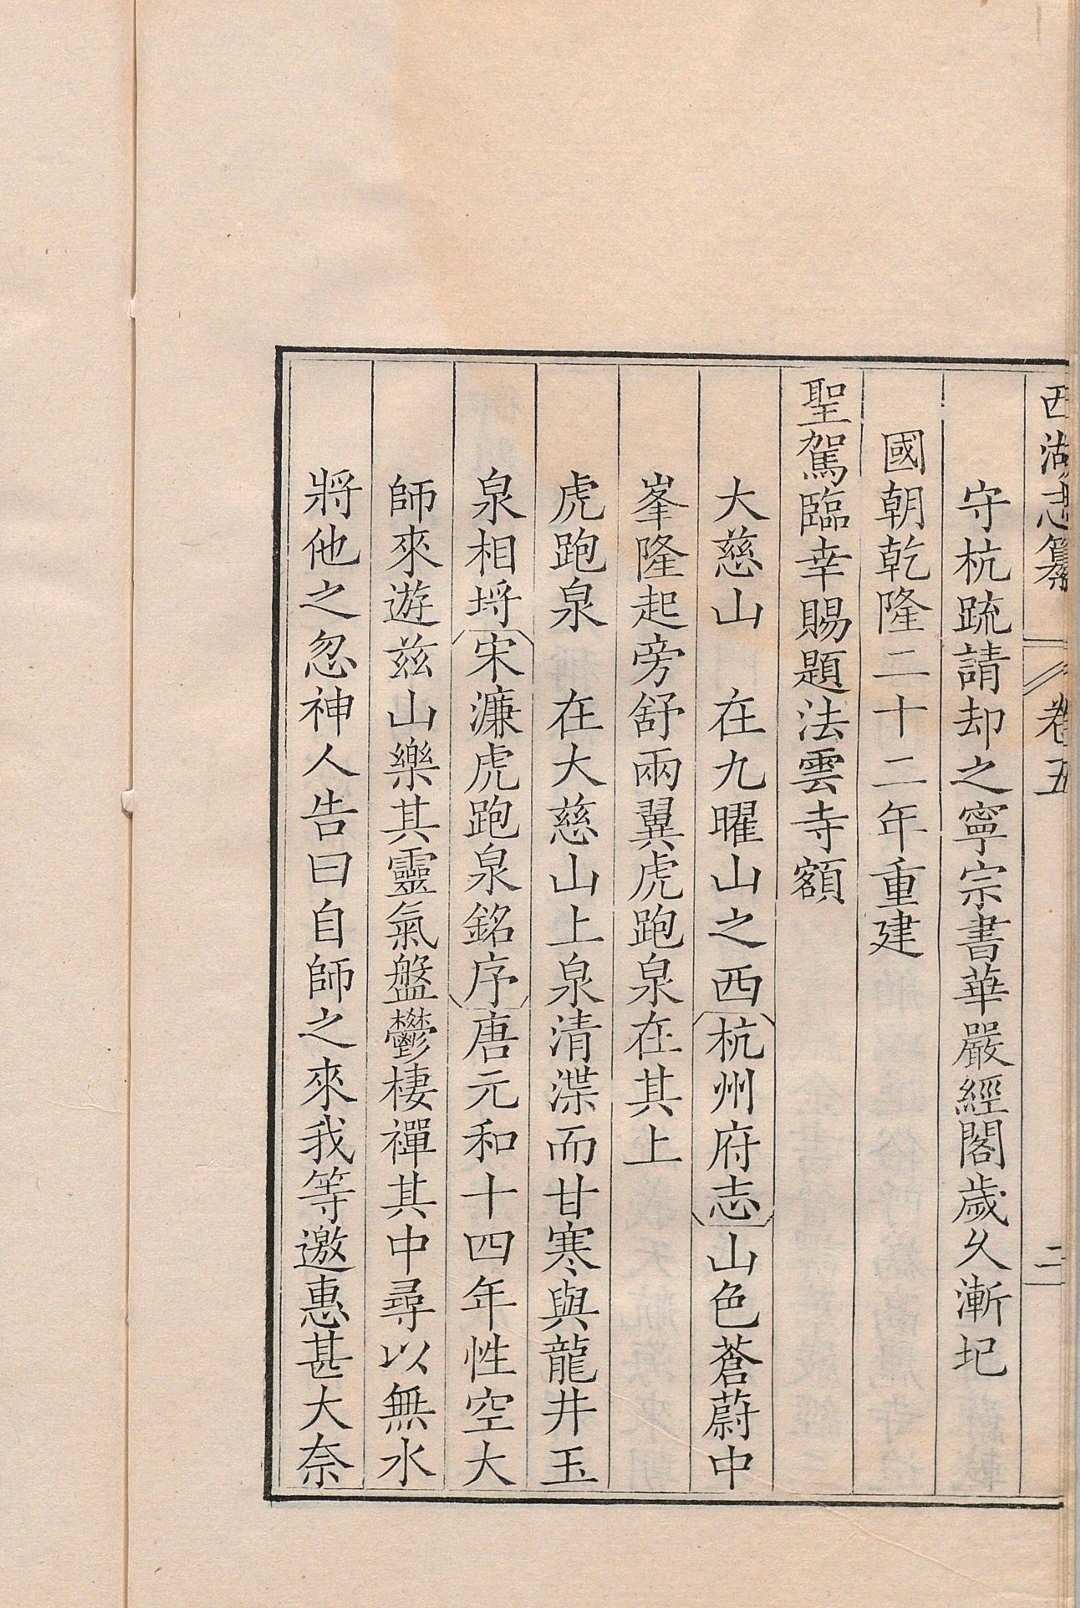 西湖志纂 卷五 二
守杭疏請却之寧宗書華嚴經閣歲久漸圮
國朝乾隆二十二年重建
聖駕臨幸賜題法雲寺額
大慈山 在九曜山之西杭州府志山色蒼蔚中
峯隆起旁舒兩翼虎跑泉在其上
虎跑泉 在大慈山上泉清渫而甘寒與龍井玉
泉相埓宋濂虎跑泉銘序唐元和十四年性空大
師來遊兹山樂其靈氣盤鬱棲禪其中尋以無水
將他之忽神人告曰自師之來我等邀惠甚大奈